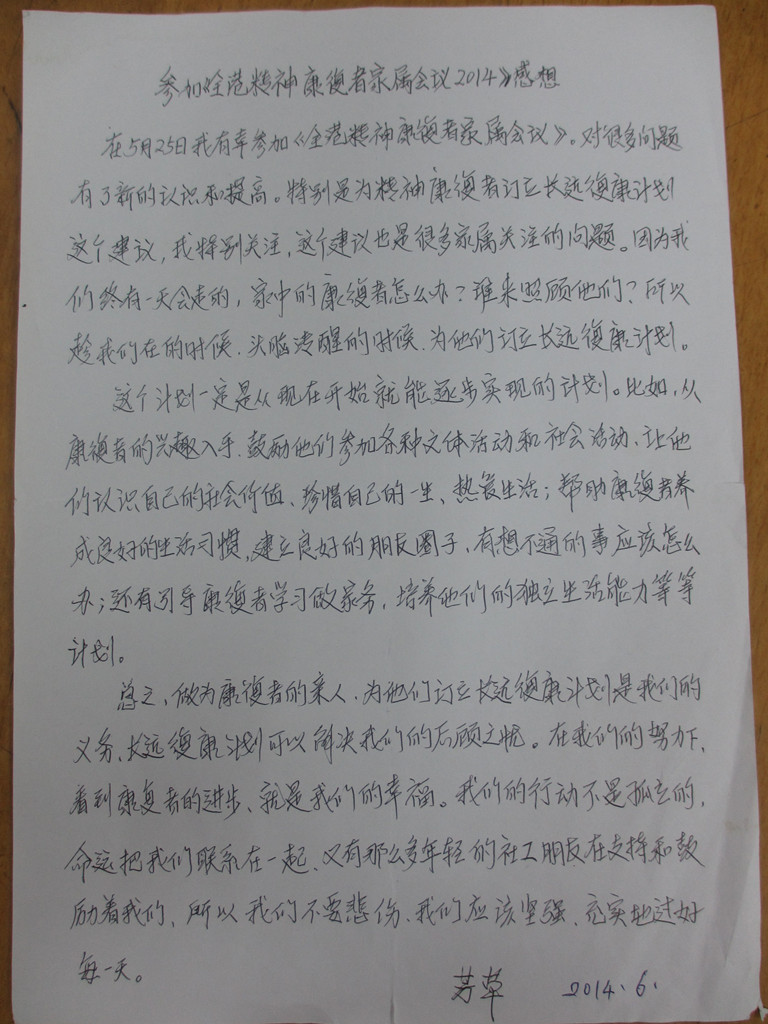 参加《全港精神康復者家属会议2014》感想
在5月25日我有幸参加《全港精神康復者家属会议》。对很多问题
有了新的认识和提高。特别是为精神康復者订立长远復康计划
这个建议，我特别关注，这个建议也是很多家属关注的问题。因为我
们终有一天会走的，家中的康復者怎么办？谁来照顾他们？所以
趁我们在的时候、头脑清醒的时候、为他们订立长远復康计划。
这个计划一定是从现在开始就能逐步实现的计划。比如，从
康復者的兴趣入手、鼓励他们参加各种文体活动和社会活动、让他
们认识自己的社会价值、珍惜自己的一生、热爱生活；帮助康復者养
成良好的生活习惯，建立良好的朋友圈子，有想不通的事应该怎么
办；还有引导康復者学习做家务，培养他们的独立生活能力等等
计划。
总之，做为康復者的亲人、为他们订立长远復康计划是我们的
义务、长远復康计划可以解决我们的后顾之忧。在我们的努力下、
看到康复者的进步、就是我们的幸福。我们的行动不是孤立的，
命运把我们联系在一起、又有那么多年轻的社工朋友在支持和鼓
励着我们，所以我们不要悲伤、我们应该坚强、充实地过好
每一天。
芳草 2014、6、